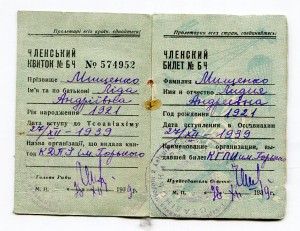 Пролетарі всіх країн, єднайтесь!
ЧЛЕНСЬКИЙ
КВИТОК № БЧ № 574952
Прізвище Мищенко
Ім'я та по батькові Ліда
Андріївна
Рік народження 1921
Дата вступу до Тсоавіахіму
27/XII - 1939
Назва організації, що видала квиток
КДПІ ім. Горького
Голова Ради
М. П. 1939 р.
Пролетарии всех стран, соединяйтесь!
ЧЛЕНСКИЙ
БИЛЕТ № БЧ
Фамилия Мищенко
Имя и отчество Лидия
Андреевна
Год рождения 1921
Дата вступления в Осоавиахим
27/XII - 1939
Наименование организации, выдавшей билет КГПИ им. Горьк
Председатель Совета
М. П. 1939 г.